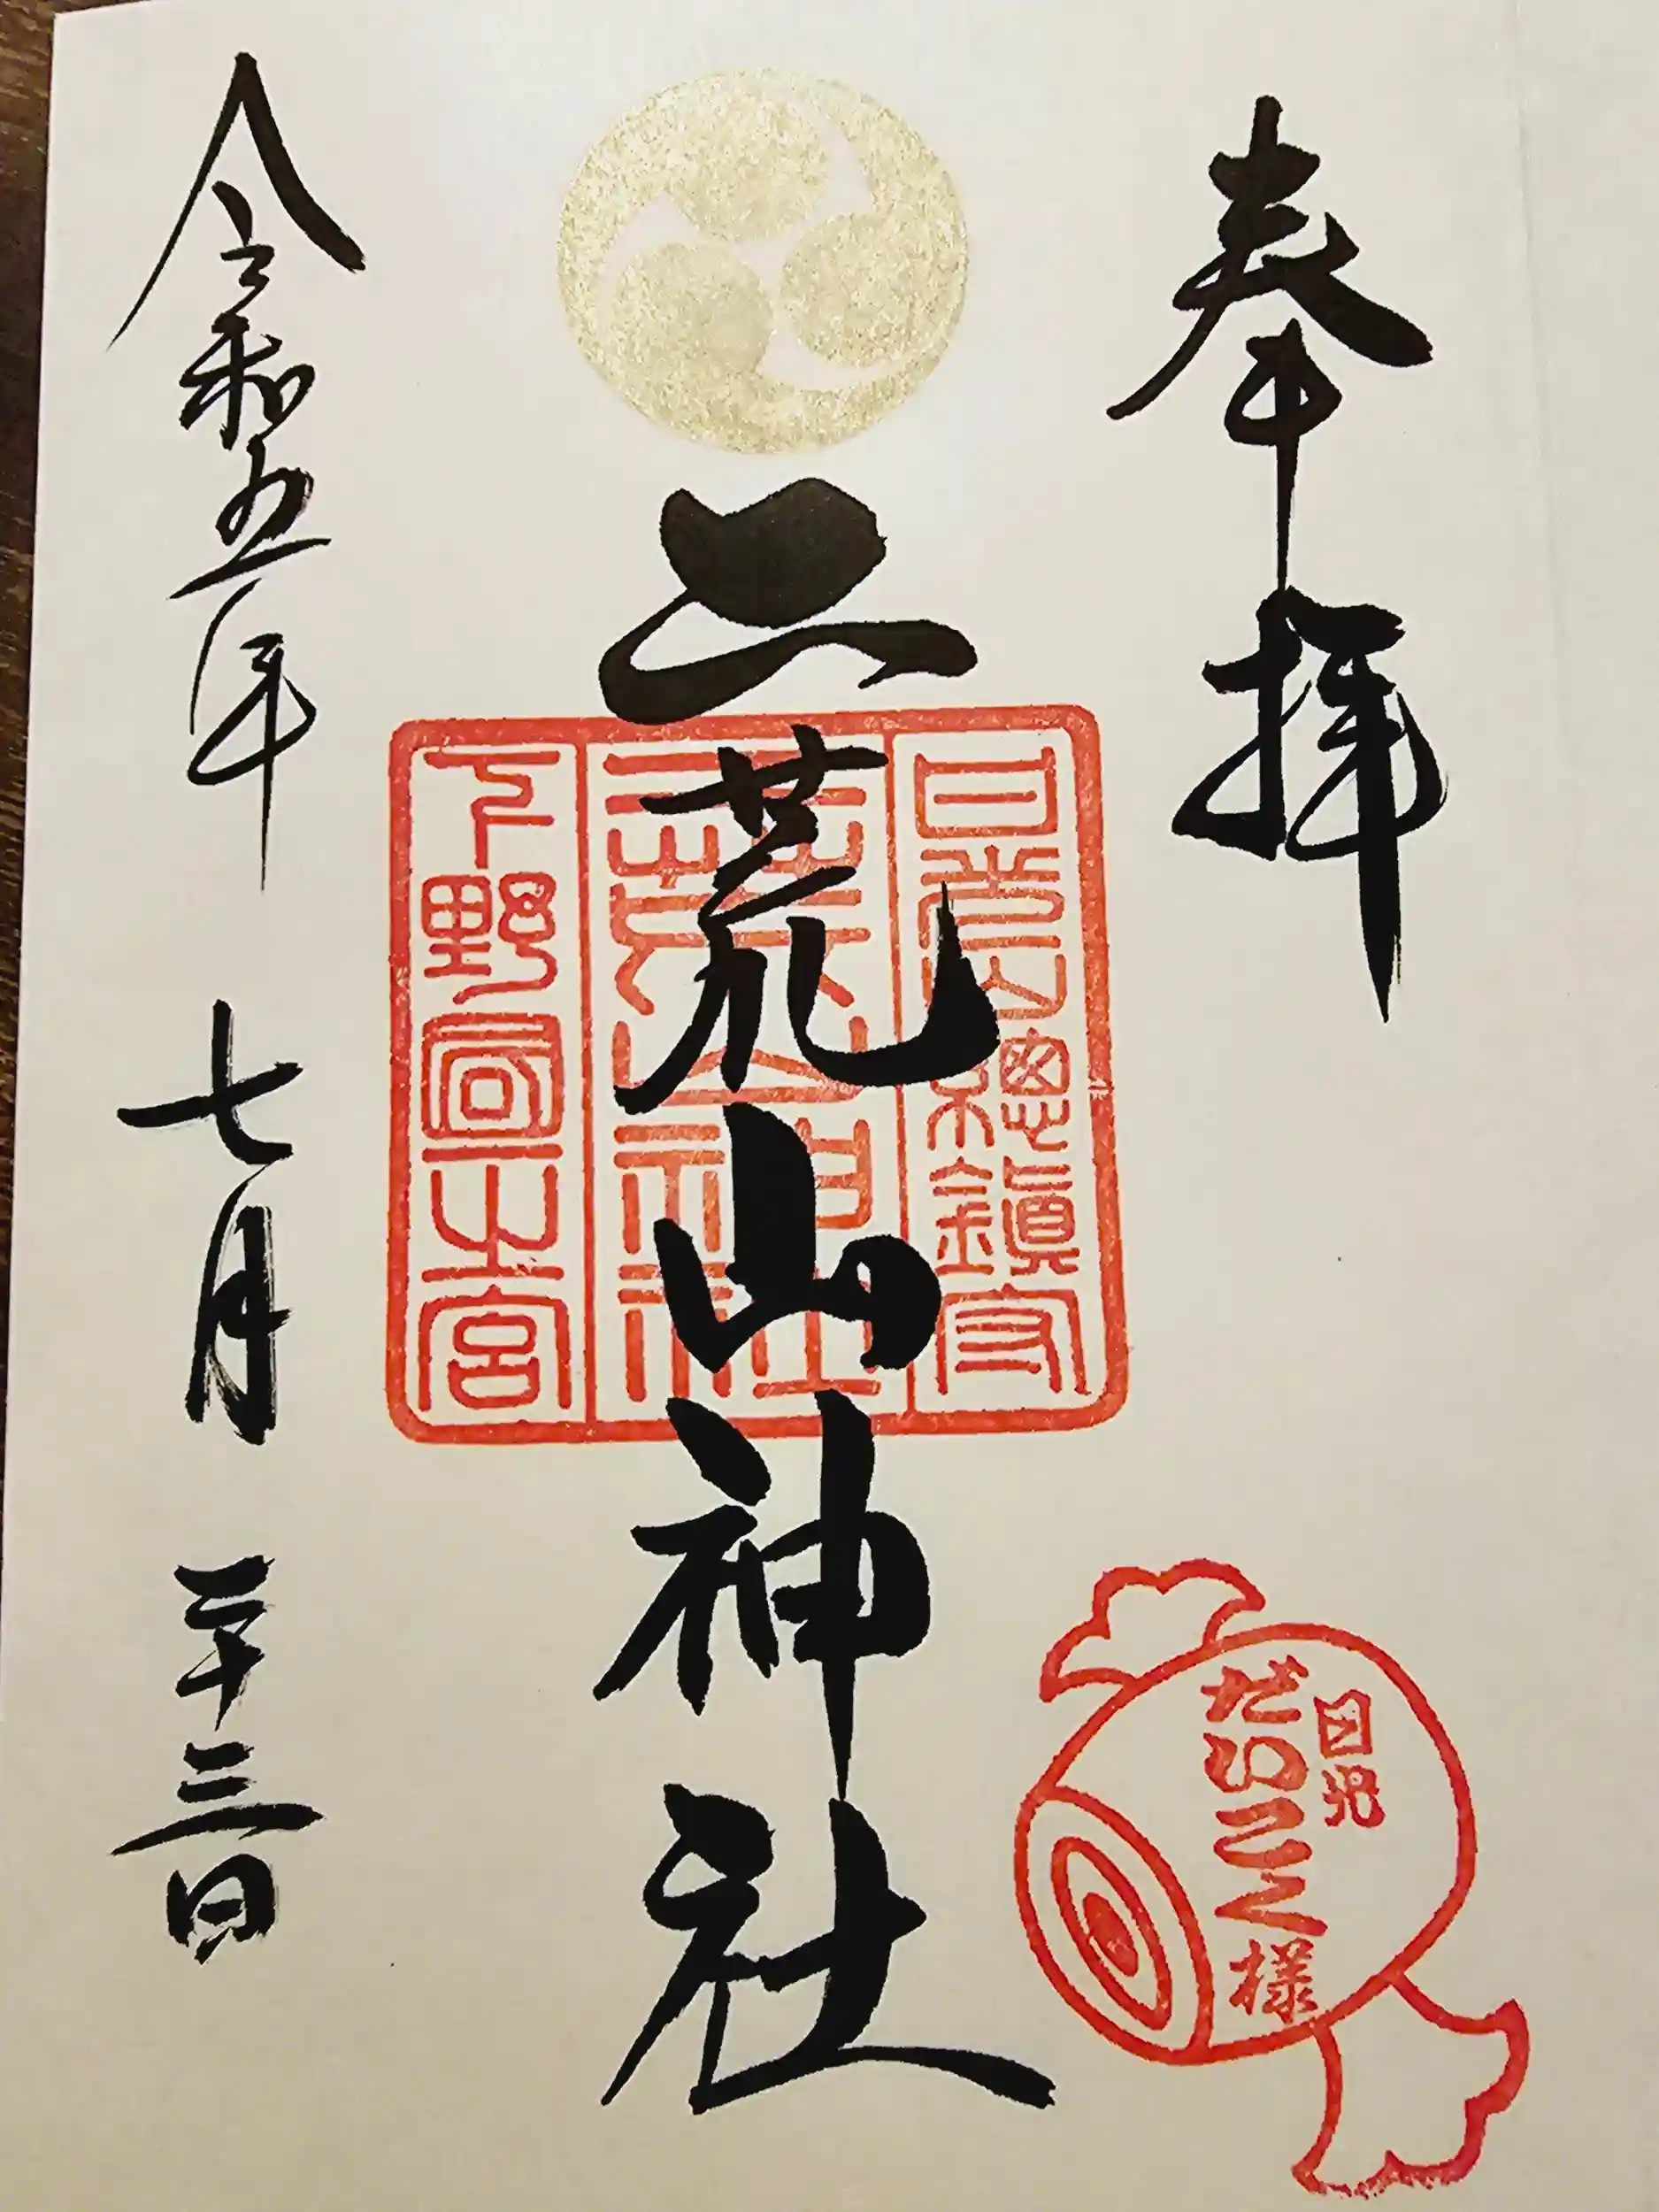 奉拝
日光山總鎮守
二荒山神社
二荒山神社
下野國一之宮
令和五年 七月 二十三日
日光
だいこく様